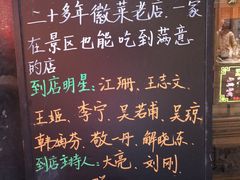 二十多年徽菜老店.一家
在景区也能吃到满意
的店
到店明星:江珊、王志文、
王姬、李宁、吴若甫、吴琼
韩再芬、敬一丹、解晓东、
到店主持人:大亮、刘刚